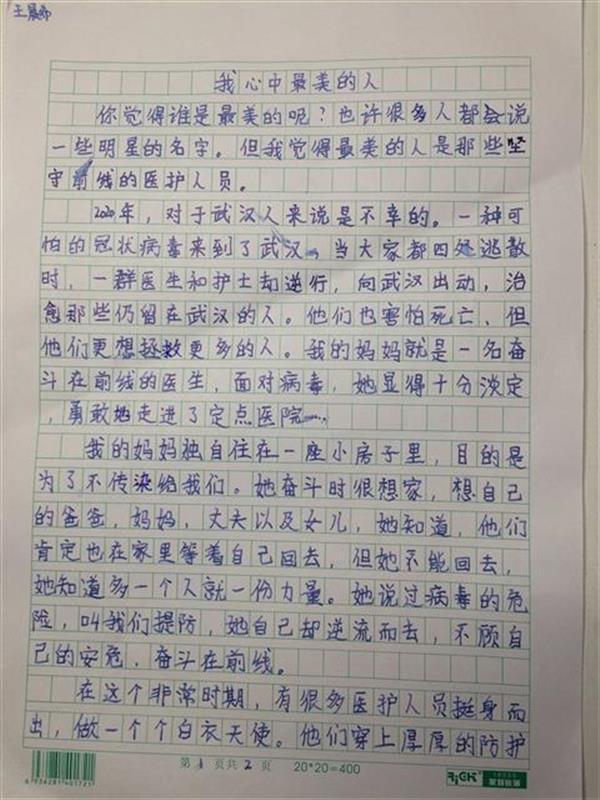 王晨
我心中最美的人
你觉得谁是最美的呢?也许很多人都会说
一些明星的名字。但我觉得最美的人是那些坚
守前线的医护人员。
2020年,对于武汉人来说是不幸的。一种可
怕的冠状病毒来到了武汉。当大家都四处逃散
时,一群医生和护士却逆行,向武汉出动,治
愈那些仍留在武汉的人。他们也害怕死亡、但
他们更想拯救更多的人。我的妈妈就是一名奋
斗在前线的医生,面对病毒,她显得十分淡定
,勇敢地走进了定点医院……
我的妈妈独自住在一座小房子里,目的是
为了不传染给我们。她奋斗时很想家,想自己
的爸爸,妈妈,丈夫以及女儿,她知道,他们
肯定也在家里等着自己回去,但她不能回去,
她知道多一个人就一份力量。她说过病毒的危
险,叫我们提防,她自己却逆流而去,不顾自
己的安危,奋斗在前线。
在这个非常时期,有很多医护人员挺身而
出,做一个个白衣天使。他们穿上厚厚的防护
第1页共2页 20*20=400
6936281401721